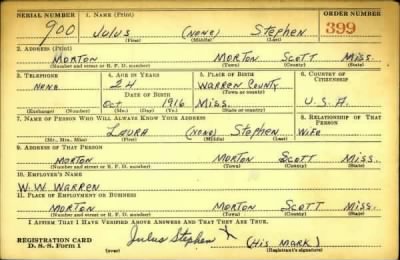 SERIAL NUMBER 1. NAME (Print) ORDER NUMBER
900 Julus (NONE) Stephen 399
(First) (Middle) (Last)
2. ADDRESS (Print)
MORTON MORTON SCOTT MISS.
(Number and street or R. F. D. number) (Town) (County) (State)
3. TELEPHONE 4. AGE IN YEARS 5. PLACE OF BIRTH 6. COUNTRY OF CITIZENSHIP
NONE 24 WARREN COUNTY
DATE OF BIRTH (Town or county)
Oct 1916 MISS. U.S.A.
(Exchange) (Number) (Mo.) (Day) (Yr.) (State or country)
7. NAME OF PERSON WHO WILL ALWAYS KNOW YOUR ADDRESS 8. RELATIONSHIP OF THAT PERSON
LAURA (NONE) Stephen WIFE
(Mr., Mrs., Miss) (First) (Middle) (Last)
9. ADDRESS OF THAT PERSON
MORTON MORTON SCOTT MISS.
(Number and street or R. F. D. number) (Town) (County) (State)
10. EMPLOYER'S NAME
W. W. WARREN
11. PLACE OF EMPLOYMENT OR BUSINESS
MORTON MORTON SCOTT MISS.
(Number and street or R. F. D. number) (Town) (County) (State)
I AFFIRM THAT I HAVE VERIFIED ABOVE ANSWERS AND THAT THEY ARE TRUE.
REGISTRATION CARD Julus Stephen X (HIS MARK)
D. S. S. Form 1 (over) (Registrant's signature)